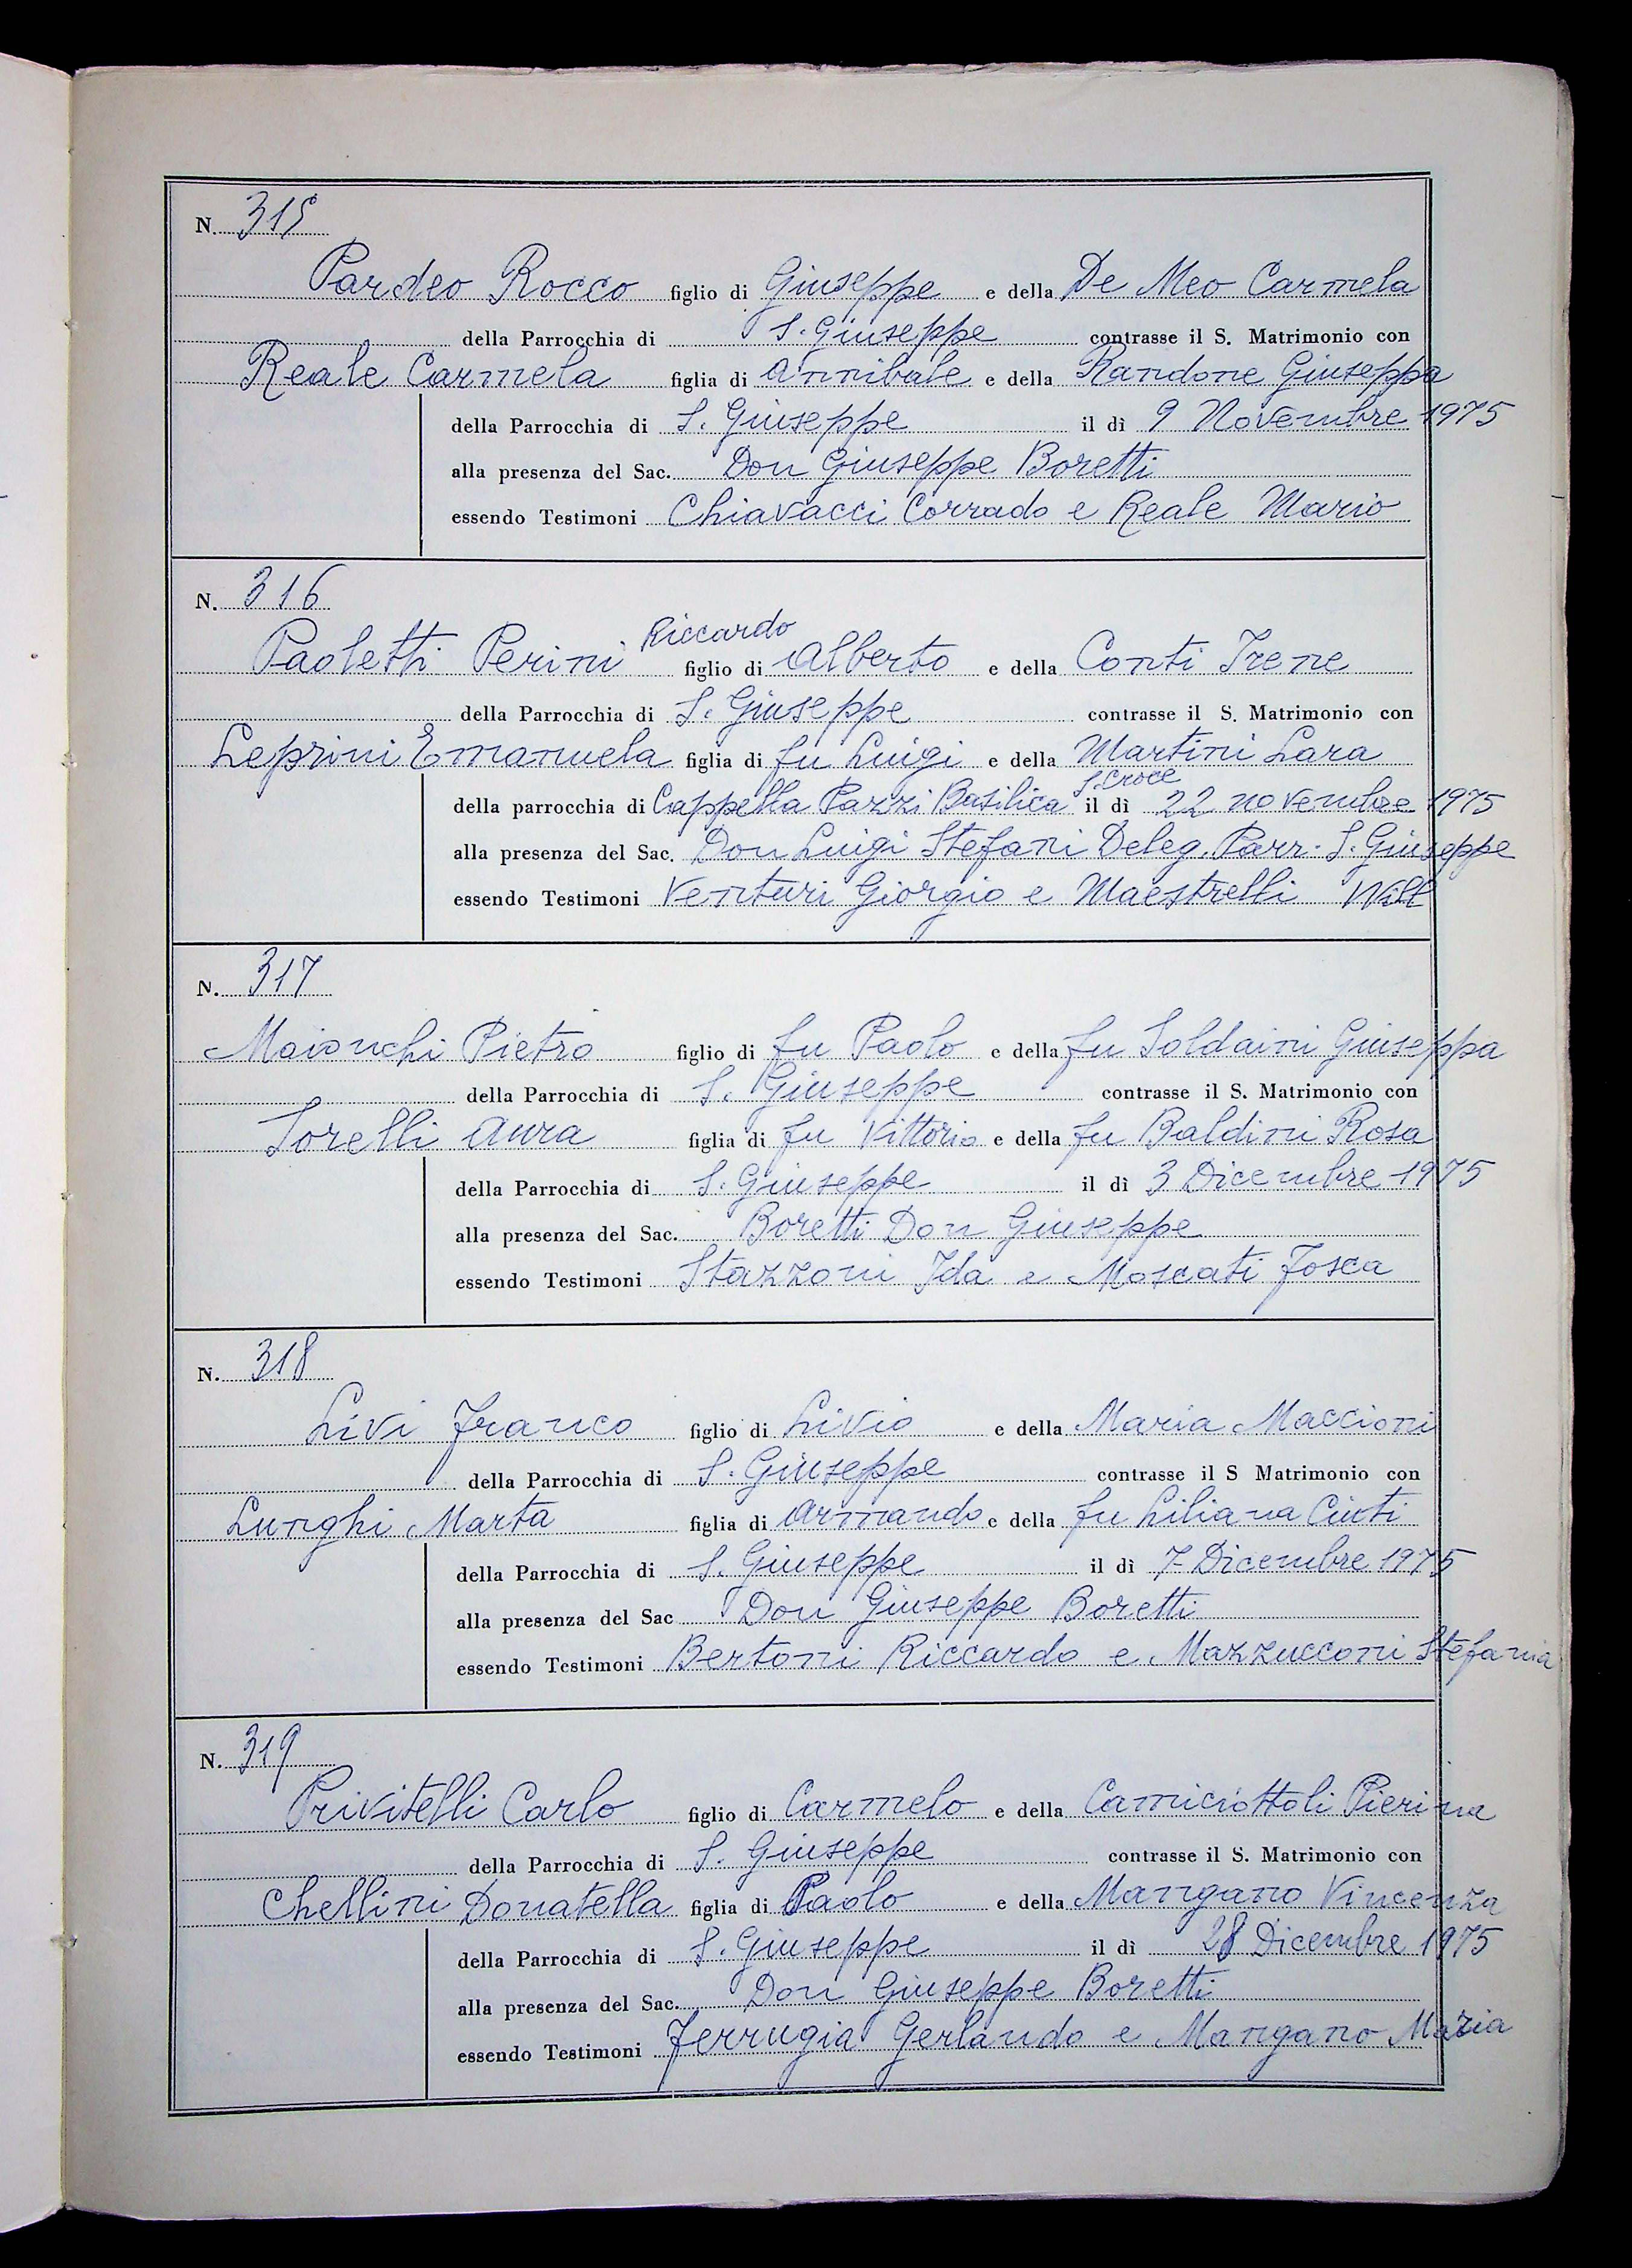 N. 315
Pardeo Rocco figlio di Giuseppe e della De Meo Carmela
della Parrocchia di S. Giuseppe contrasse il S. Matrimonio con
Reale Carmela figlia di Annibale e della Randone Giuseppa
della Parrocchia di S. Giuseppe il dì 9 Novembre 1975
alla presenza del Sac. Don Giuseppe Boretti
essendo Testimoni Chiavacci Corrado e Reale Mario
N. 316
Paoletti Perini Riccardo figlio di Alberto e della Conti Irene
della Parrocchia di S. Giuseppe contrasse il S. Matrimonio con
Leprini Emanuela figlia di fu Luigi e della Martini Lara
della parrocchia di Cappella Pazzi Basilica S. Croce il dì 22 novembre 1975
alla presenza del Sac. Don Luigi Stefani Deleg. Parr. S. Giuseppe
essendo Testimoni Venturi Giorgio e Maestrelli Will
N. 317
Maionchi Pietro figlio di fu Paolo e della fu Soldaini Giuseppa
della Parrocchia di S. Giuseppe contrasse il S. Matrimonio con
Sorelli Aura figlia di fu Vittorio e della fu Baldini Rosa
della Parrocchia di S. Giuseppe il dì 3 Dicembre 1975
alla presenza del Sac. Boretti Don Giuseppe
essendo Testimoni Stazzoni Ida e Moscati Fosca
N. 318
Livi Franco figlio di Livio e della Maria Maccioni
della Parrocchia di S. Giuseppe contrasse il S Matrimonio con
Lunghi Marta figlia di Armando e della fu Liliana Ciuti
della Parrocchia di S. Giuseppe il dì 7 Dicembre 1975
alla presenza del Sac Don Giuseppe Boretti
essendo Testimoni Bertoni Riccardo e Mazzucconi Stefania
N. 319
Privitelli Carlo figlio di Carmelo e della Camiciottoli Pierina
della Parrocchia di S. Giuseppe contrasse il S. Matrimonio con
Chellini Donatella figlia di Paolo e della Mangano Vincenza
della Parrocchia di S. Giuseppe il dì 28 Dicembre 1975
alla presenza del Sac. Don Giuseppe Boretti
essendo Testimoni Ferrugia Gerlando e Mangano Maria